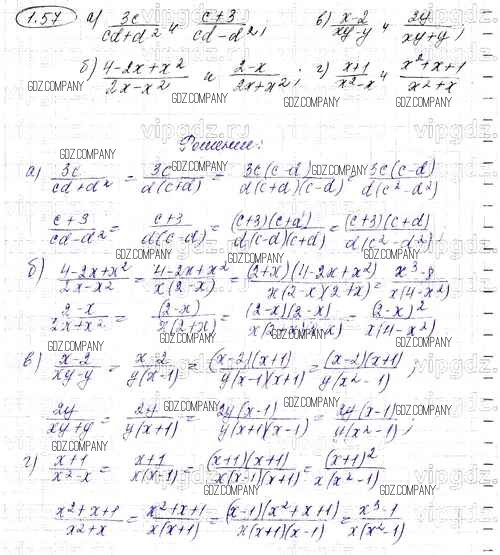 1.57 а) 3c/(cd+d²) и (c+3)/(cd-d²); в) (x-2)/(xy-y) и 2y/(xy+y);
б) (4-2x+x²)/(2x-x²) и (2-x)/(2x+x²); г) (x+1)/(x²-x) и (x²+x+1)/(x²+x)
Решение:
а) 3c/(cd+d²) = 3c/(d(c+d)) = 3c(c-d)/(d(c+d)(c-d)) = 3c(c-d)/(d(c²-d²))
(c+3)/(cd-d²) = (c+3)/(d(c-d)) = (c+3)(c+d)/(d(c-d)(c+d)) = (c+3)(c+d)/(d(c²-d²));
б) (4-2x+x²)/(2x-x²) = (4-2x+x²)/(x(2-x)) = (2+x)(4-2x+x²)/(x(2-x)(2+x)) = (x³-8)/(x(4-x²))
(2-x)/(2x+x²) = (2-x)/(x(2+x)) = (2-x)(2-x)/(x(2+x)(2-x)) = (2-x)²/(x(4-x²))
в) (x-2)/(xy-y) = (x-2)/(y(x-1)) = (x-2)(x+1)/(y(x-1)(x+1)) = (x-2)(x+1)/(y(x²-1));
2y/(xy+y) = 2y/(y(x+1)) = 2y(x-1)/(y(x+1)(x-1)) = 2y(x-1)/(y(x²-1));
г) (x+1)/(x²-x) = (x+1)/(x(x-1)) = (x+1)(x+1)/(x(x-1)(x+1)) = (x+1)²/(x(x²-1))
(x²+x+1)/(x²+x) = (x²+x+1)/(x(x+1)) = (x-1)(x²+x+1)/(x(x+1)(x-1)) = (x³-1)/(x(x²-1))
GDZ.COMPANY
vipgdz.ru